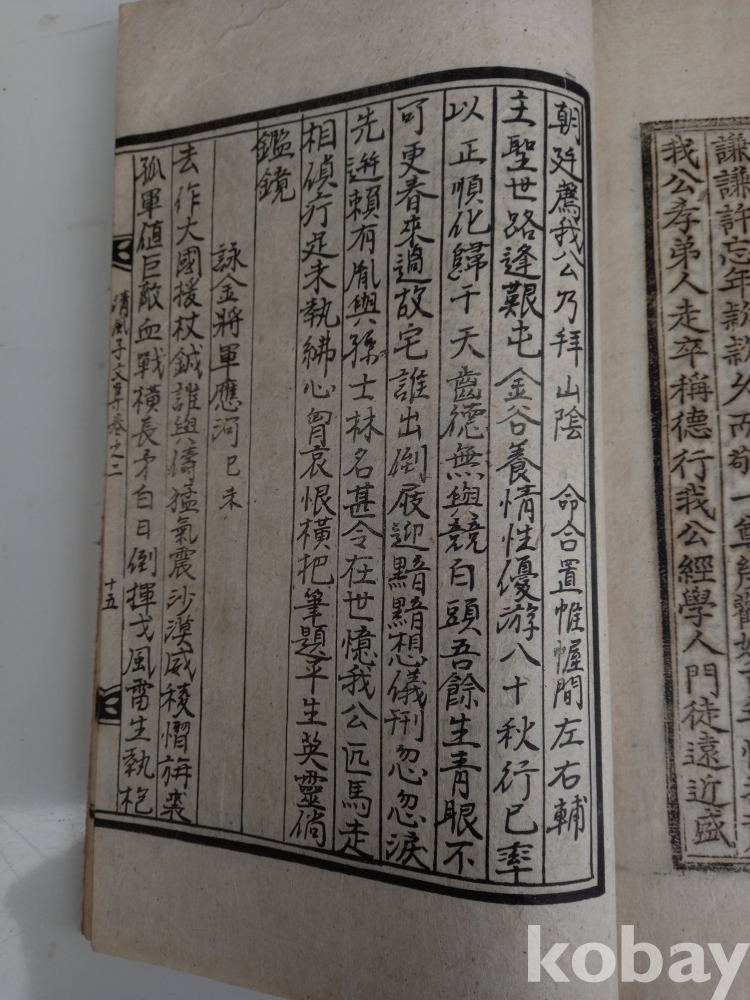 謙謙許忘年款款久而敬一
我公孝弟人走卒稱德行我公經學人門徒遠近盛
朝廷薦我公乃拜山陰 命合置帷幄間左右輔
主聖世路逢艱屯金谷養情性優游八十秋行已率
以正順化歸于天齒德無與競白頭吾餘生青眼不
可更春來過故宅誰出倒屐迎黯黯想儀刑忽忽淚
先迸賴有胤與孫士林名甚令在世憶我公匹馬走
相偵疔足未執紼心胷哀恨橫把筆題平生英靈倘
鑑鏡
詠金將軍應河 已未
去作大國援杖鉞誰與儔猛氣震沙漠威稜慴旃裘
孤軍値巨敵血戰橫長矛白日倒揮戈風雷生執枹
淸風子文集卷之二
十五
kobay